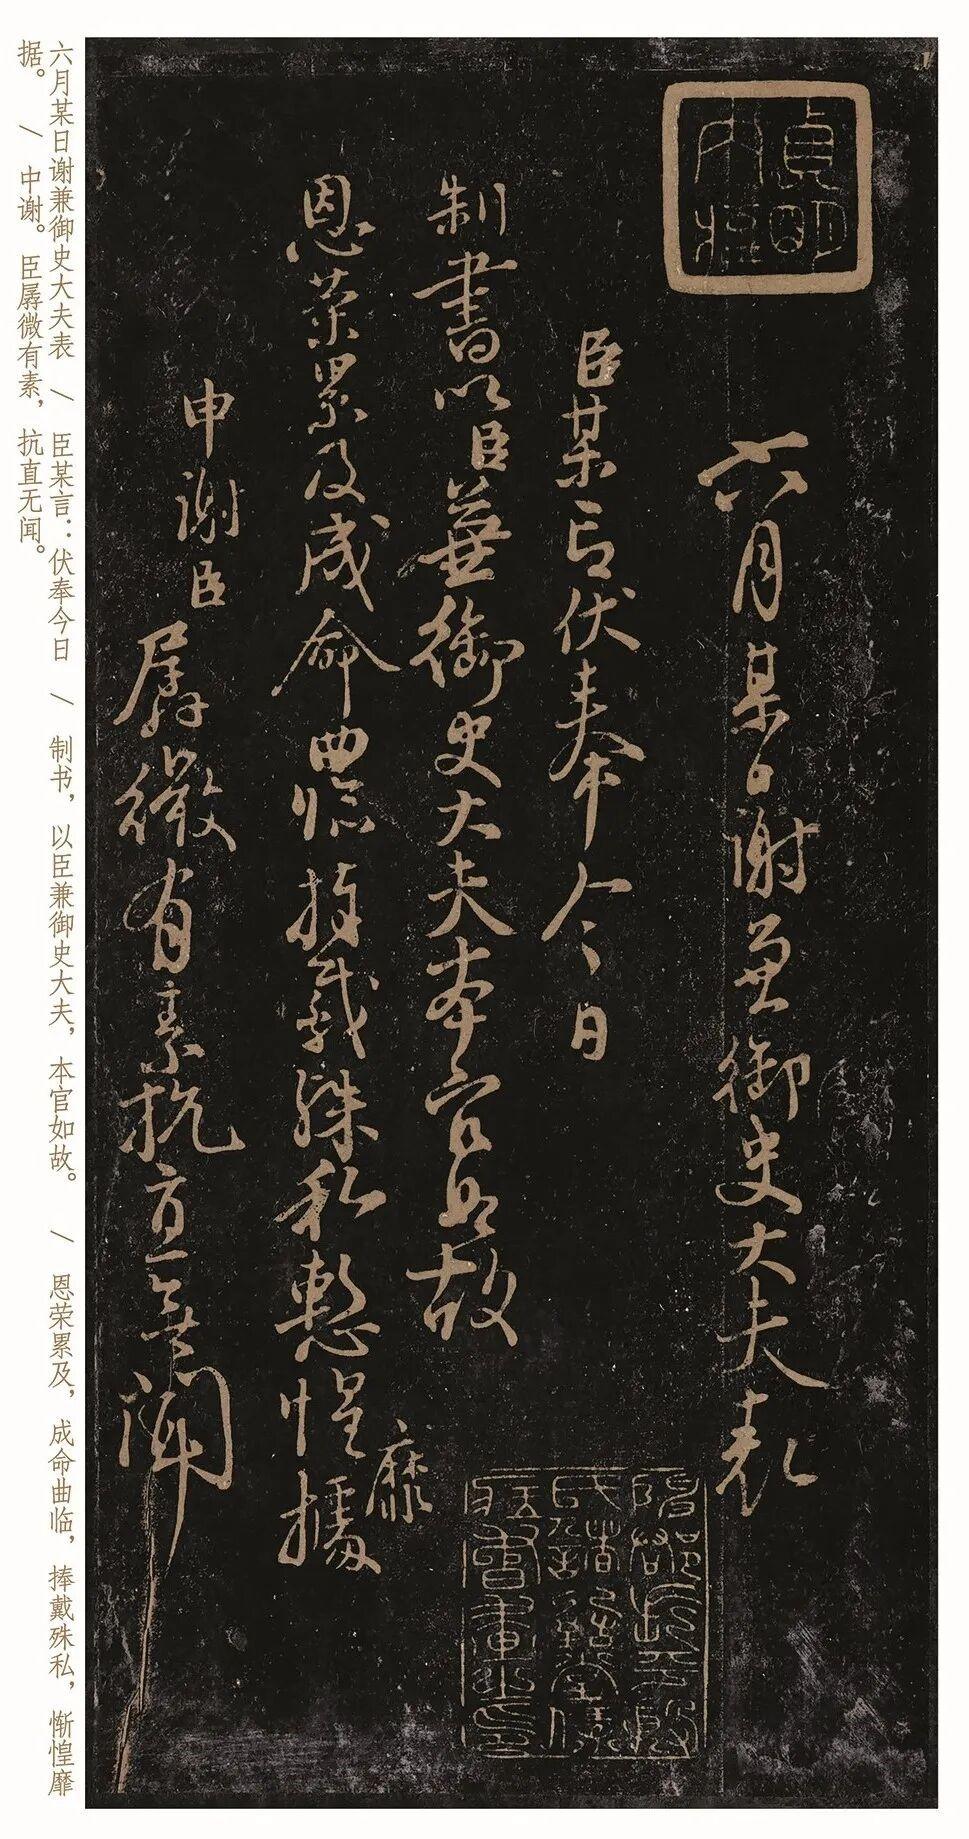 六月某日谢兼御史大夫表 / 臣某言：伏奉今日 / 制书，以臣兼御史大夫，本官如故。 / 恩荣累及，成命曲临，捧戴殊私，惭惶靡
据。 / 中谢。臣孱微有素，抗直无闻。
六月某日謝兼御史大夫表
臣某言伏奉今日
制書以臣兼御史大夫本官如故
恩榮累及成命曲临捧戴殊私慙惶據
靡
申謝臣孱微有素抗直無聞